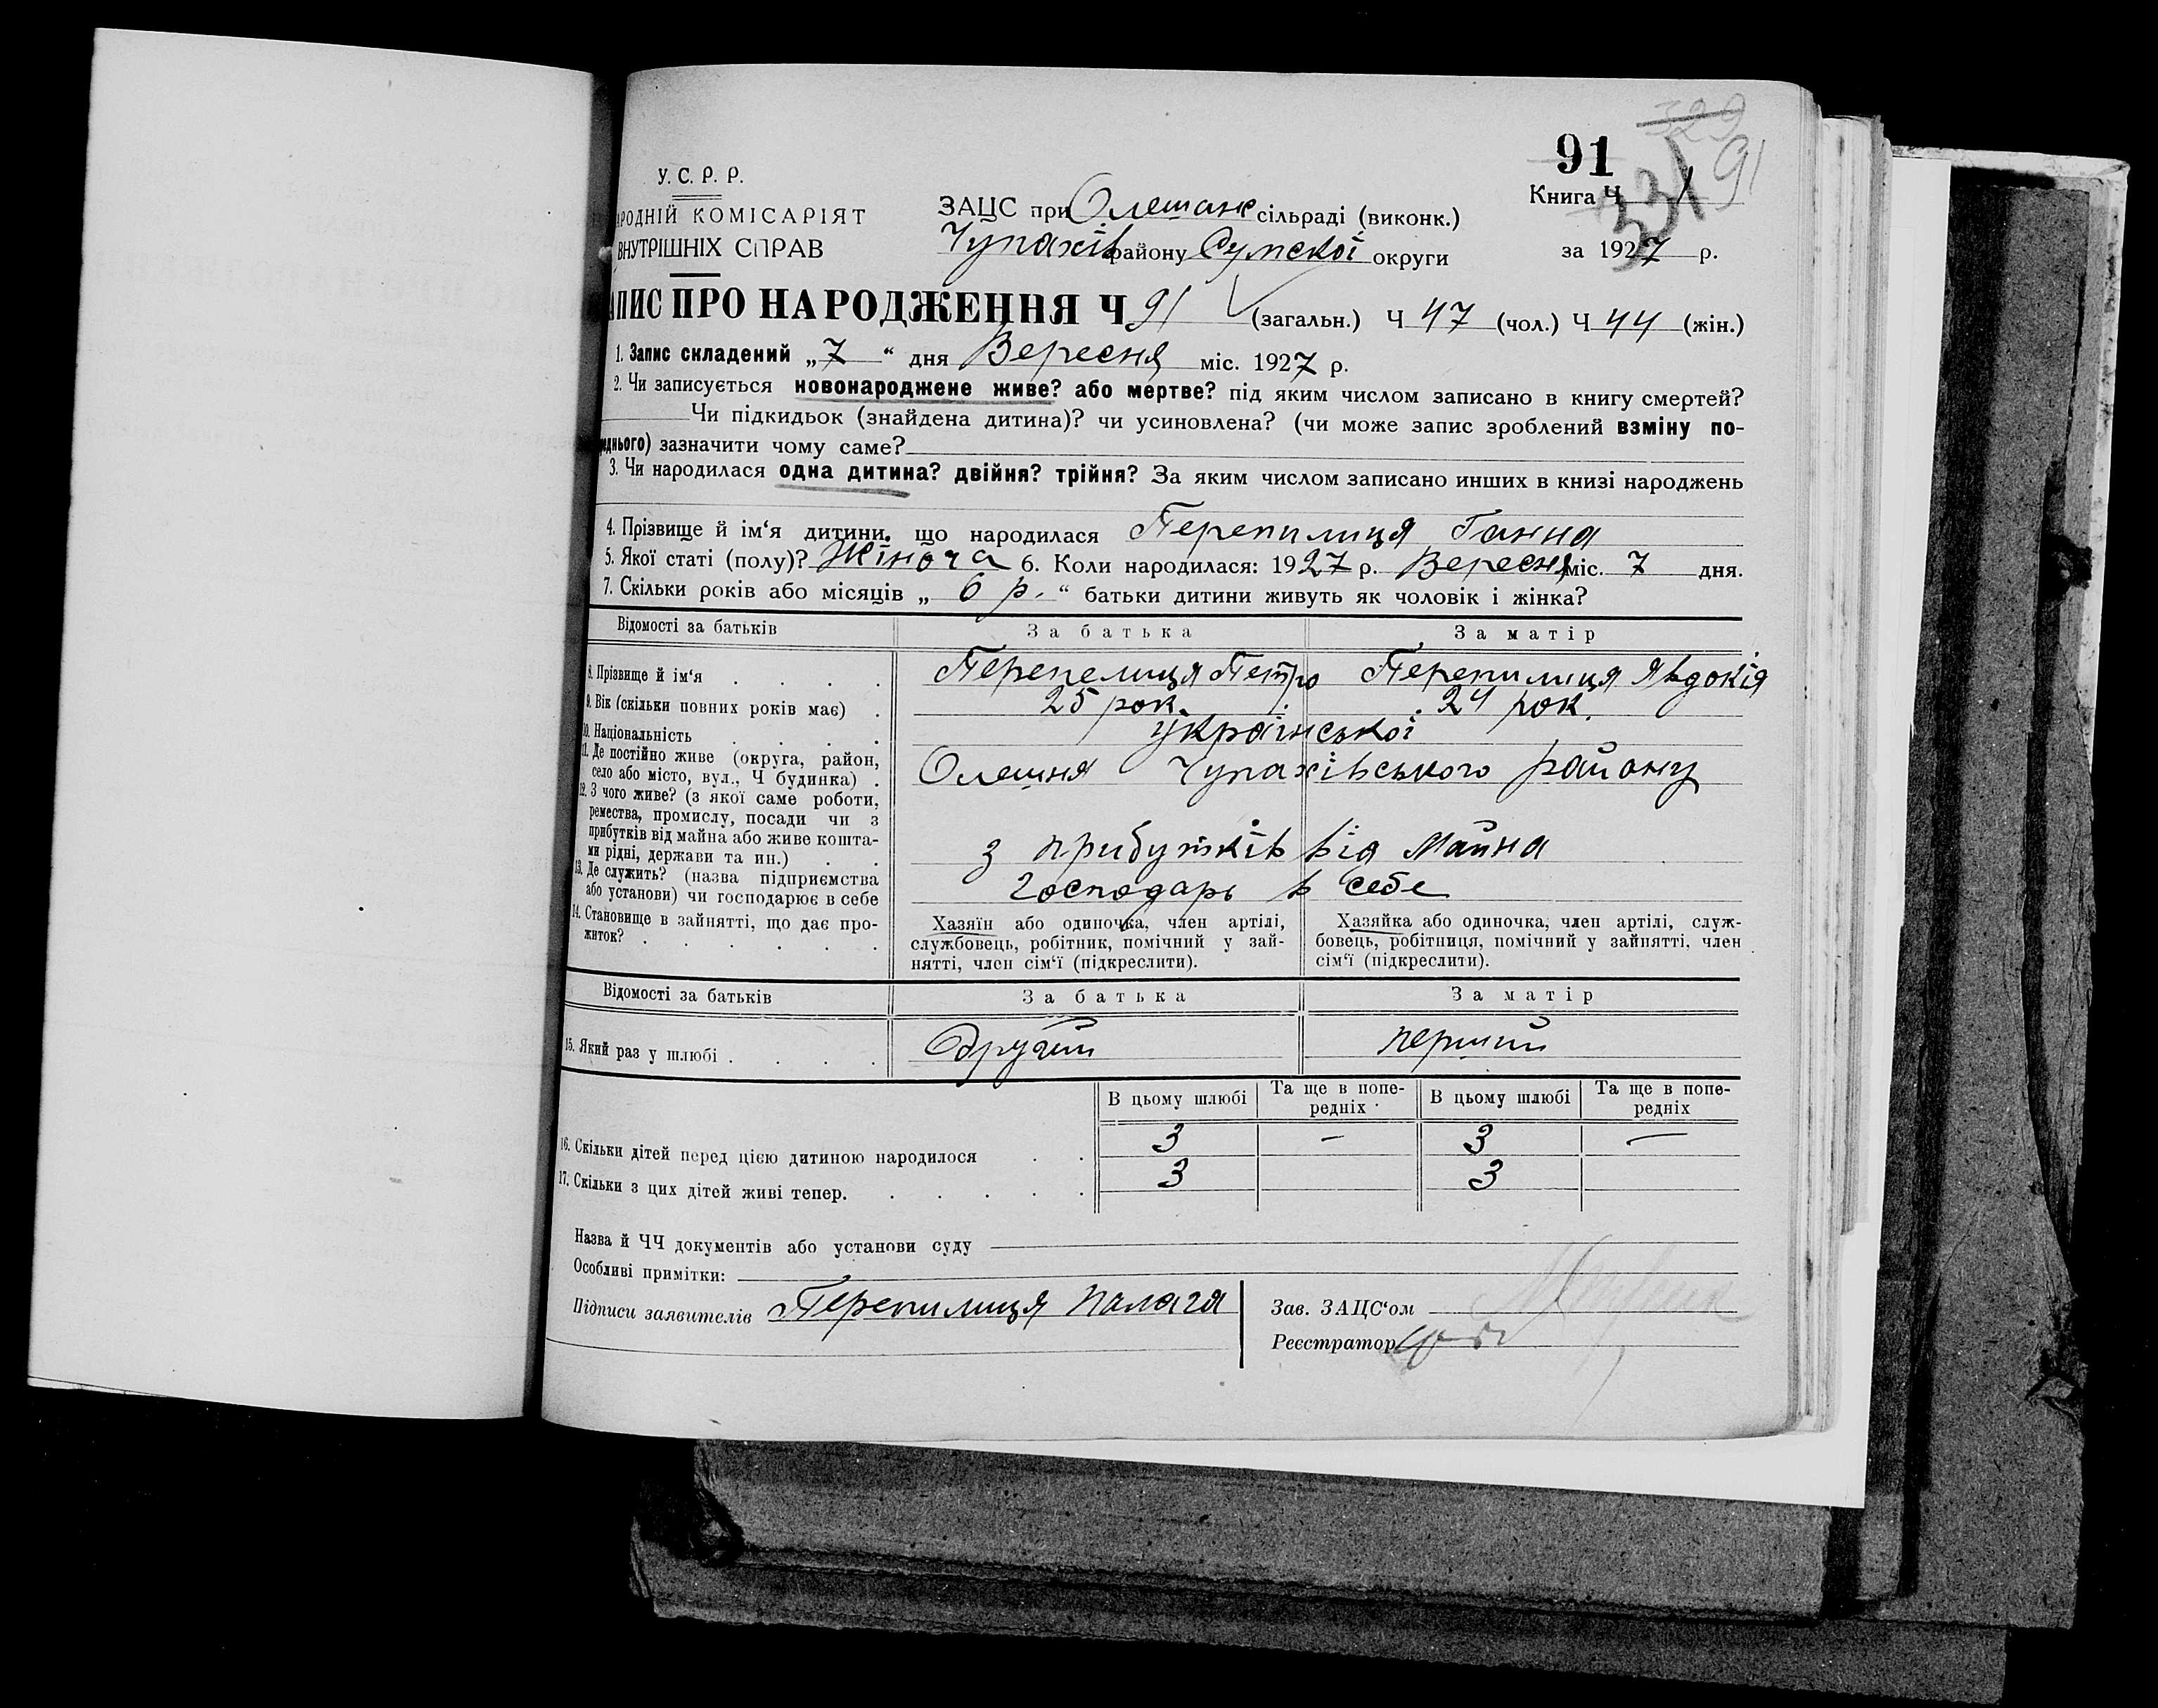 329
91
91
331
У. С. Р. Р.
АРОДНІЙ КОМІСАРІЯТ
ВНУТРІШНІХ СПРАВ
ЗАЦС при Олешанс сільраді (виконк.)
Чупахів району Сумскої округи
Книга Ч
за 1927 р.
АПИС ПРО НАРОДЖЕННЯ Ч 91 (загальн.) Ч 47 (чол.) Ч 44 (жін.)
1. Запис складений „7“ дня Вересня міс. 1927 р.
2. Чи записується новонароджене живе? або мертве? під яким числом записано в книгу смертей?
Чи підкидьок (знайдена дитина)? чи усиновлена? (чи може запис зроблений взміну по-
реднього) зазначити чому саме?
3. Чи народилася одна дитина? двійня? трійня? За яким числом записано инших в книзі народжень
4. Прізвище й ім‘я дитини, що народилася Перепилиця Ганна
5. Якої статі (полу)? Жіноча 6. Коли народилася: 1927 р. Вересня міс. 7 дня.
7. Скільки років або місяців „ 6 р. “ батьки дитини живуть як чоловік і жінка?
Відомості за батьків За батька За матір
8. Прізвище й ім‘я Перепелиця Петро Перепилиця Явдокія
9. Вік (скільки повних років має) 25 рок. 24 рок.
10. Національність української
11. Де постійно живе (округа, район,
село або місто, вул., Ч будинка) Олешня Чупахівського району
12. З чого живе? (з якої саме роботи,
ремества, промислу, посади чи з
прибутків від майна або живе кошта-
ми рідні, держави та ин.) з прибутків від майна
13. Де служить? (назва підприємства
або установи) чи господарює в себе господарь в себе
14. Становище в зайнятті, що дає про-
житок?
Хазяїн або одиночка, член артілі,
службовець, робітник, помічний у зай-
нятті, член сім‘ї (підкреслити).
Хазяйка або одиночка, член артілі, служ-
бовець, робітниця, помічний у зайнятті, член
сім‘ї (підкреслити).
Відомості за батьків За батька За матір
15. Який раз у шлюбі Другий перший
В цьому шлюбі Та ще в попе-
редніх В цьому шлюбі Та ще в попе-
редніх
16. Скільки дітей перед цією дитиною народилося 3 — 3 —
17. Скільки з цих дітей живі тепер. 3 3
Назва й ЧЧ документів або установи суду
Особливі примітки:
Підписи заявителів Перепилиця Палагя
Зав. ЗАЦС‘ом
Реєстратор